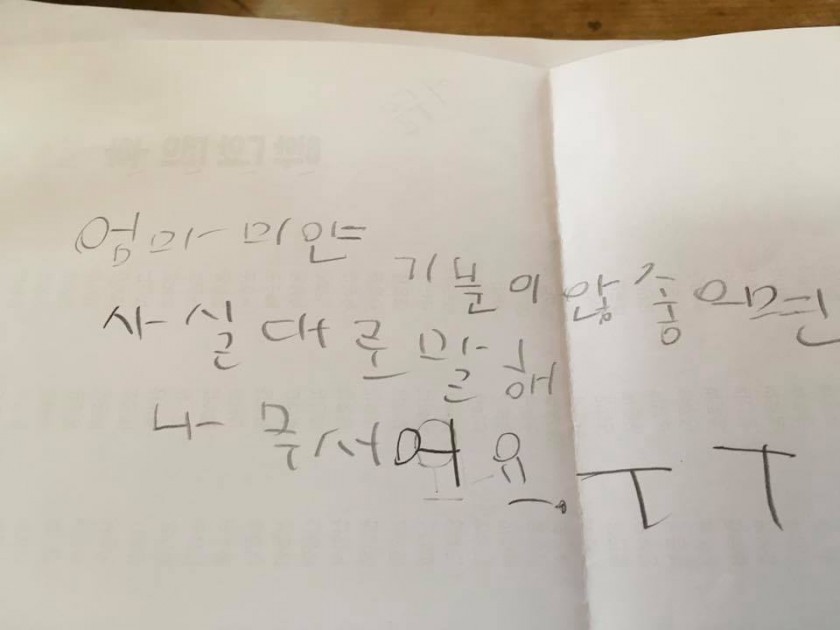 엄마 미안
기분이 않좋으면
사실대로 말해
나 무서어요. ㅜㅜ